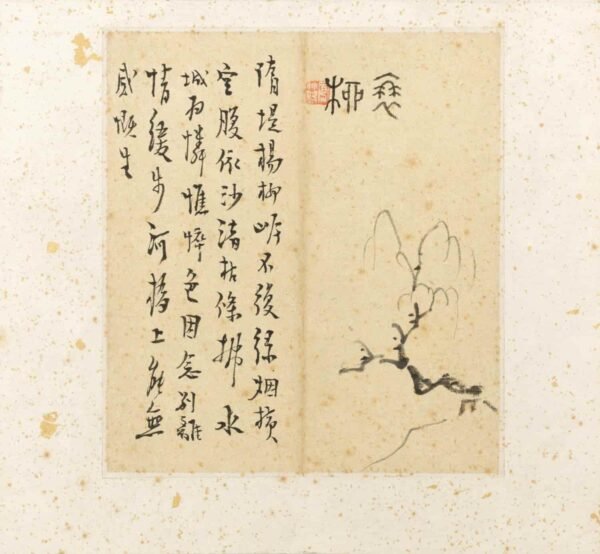 衰柳
隋堤楊柳岸不復綠烟横
空腹依沙渚枯條拂水
城為憐憔悴色因念别離
情緩步河橋上能無
感慨生